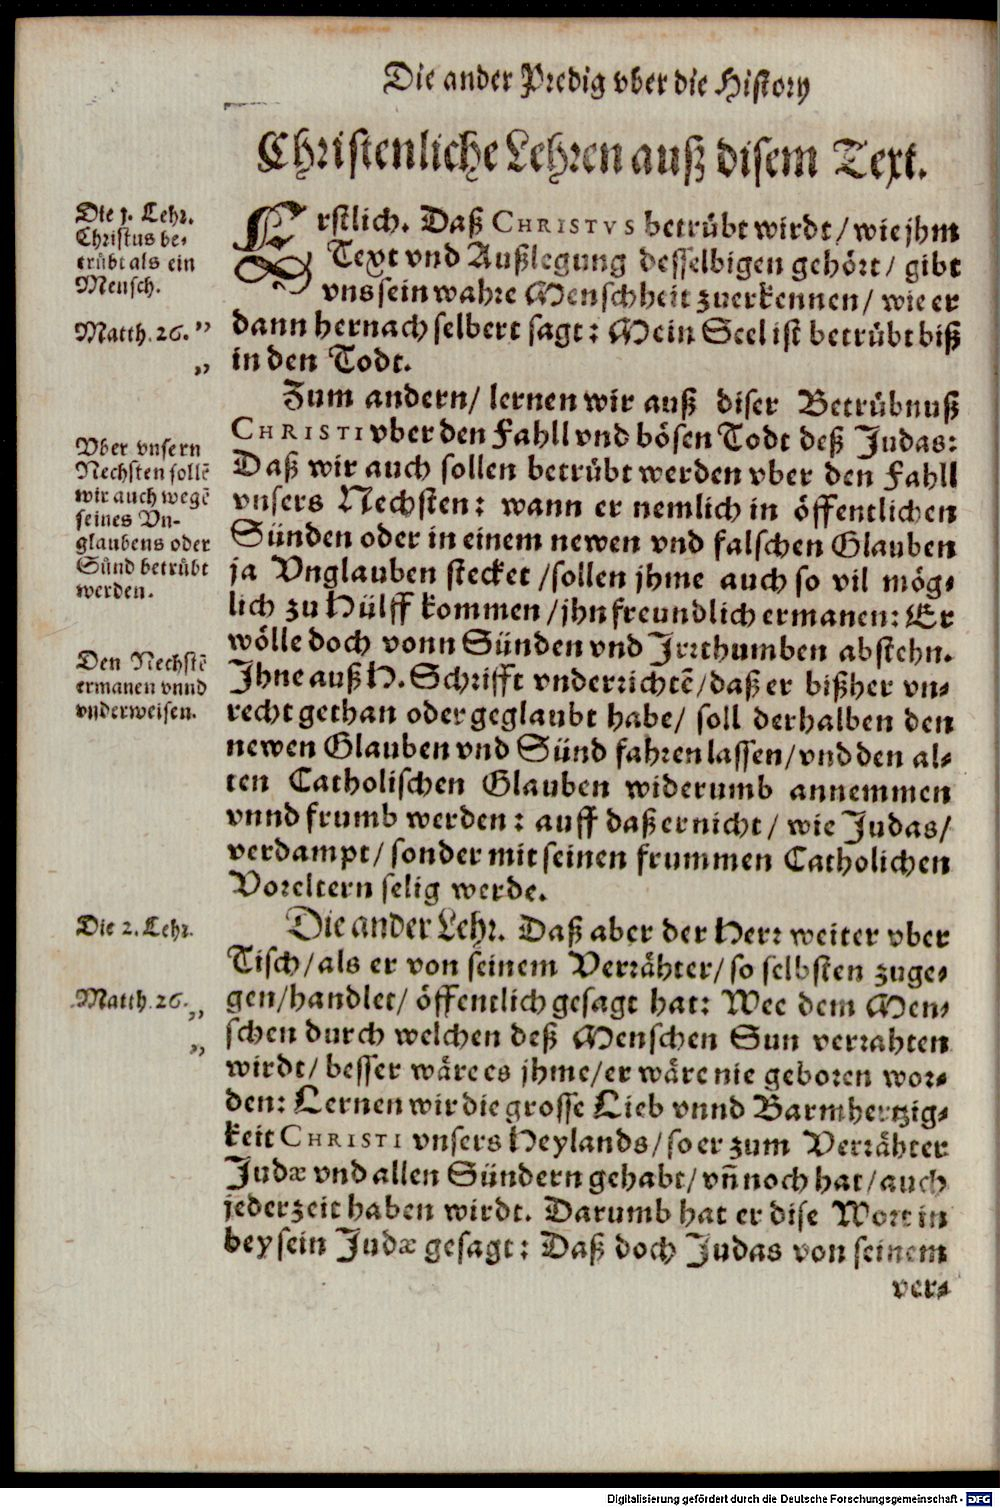 Die ander Predig vber die History
Christenliche Lehren auß disem Text.
Die 1. Lehr.
Christus be-
trübt als ein
Mensch.
Matth. 26. "
"
Erstlich. Daß CHRISTVS betrübt wirdt / wie jhm
Text vnd Außlegung desselbigen gehört / gibt
vns sein wahre Menschheit zuerkennen / wie er
dann hernach selbert sagt: Mein Seel ist betrübt biß
in den Todt.
Zum andern / lernen wir auß diser Betrübnuß
CHRISTI vber den Fahll vnd bösen Todt deß Judas:
Daß wir auch sollen betrübt werden vber den Fahll
vnsers Nechsten: wann er nemlich in öffentlichen
Sünden oder in einem newen vnd falschen Glauben
ja Vnglauben stecket / sollen jhme auch so vil mög-
lich zu Hülff kommen / jhn freundlich ermanen: Er
wölle doch vonn Sünden vnd Irrthumben abstehn.
Ihne auß H. Schrifft vnderrichtē / daß er bißher vn-
recht gethan oder geglaubt habe / soll derhalben den
newen Glauben vnd Sünd fahren lassen / vnd den al-
ten Catholischen Glauben widerumb annemmen
vnnd frumb werden: auff daß er nicht / wie Judas /
verdampt / sonder mit seinen frummen Catholichen
Voreltern selig werde.
Vber vnsern
Nechsten sollē
wir auch wegē
seines Vn-
glaubens oder
Sünd betrübt
werden.
Den Nechstē
ermanen vnnd
vnderweisen.
Die 2. Lehr.
Matth. 26. "
"
Die ander Lehr. Daß aber der Herr weiter vber
Tisch / als er von seinem Verrähter / so selbsten zuge-
gen / handlet / öffentlich gesagt hat: Wee dem Men-
schen durch welchen deß Menschen Sun verrahten
wirdt / besser wäre es jhme / er wäre nie geboren wor-
den: Lernen wir die grosse Lieb vnnd Barmhertzig-
keit CHRISTI vnsers Heylands / so er zum Verrähter
Judæ vnd allen Sündern gehabt / vñ noch hat / auch
jederzeit haben wirdt. Darumb hat er dise Wort in
beysein Judæ gesagt: Daß doch Judas von seinem
ver-
Digitalisierung gefördert durch die Deutsche Forschungsgemeinschaft - DFG